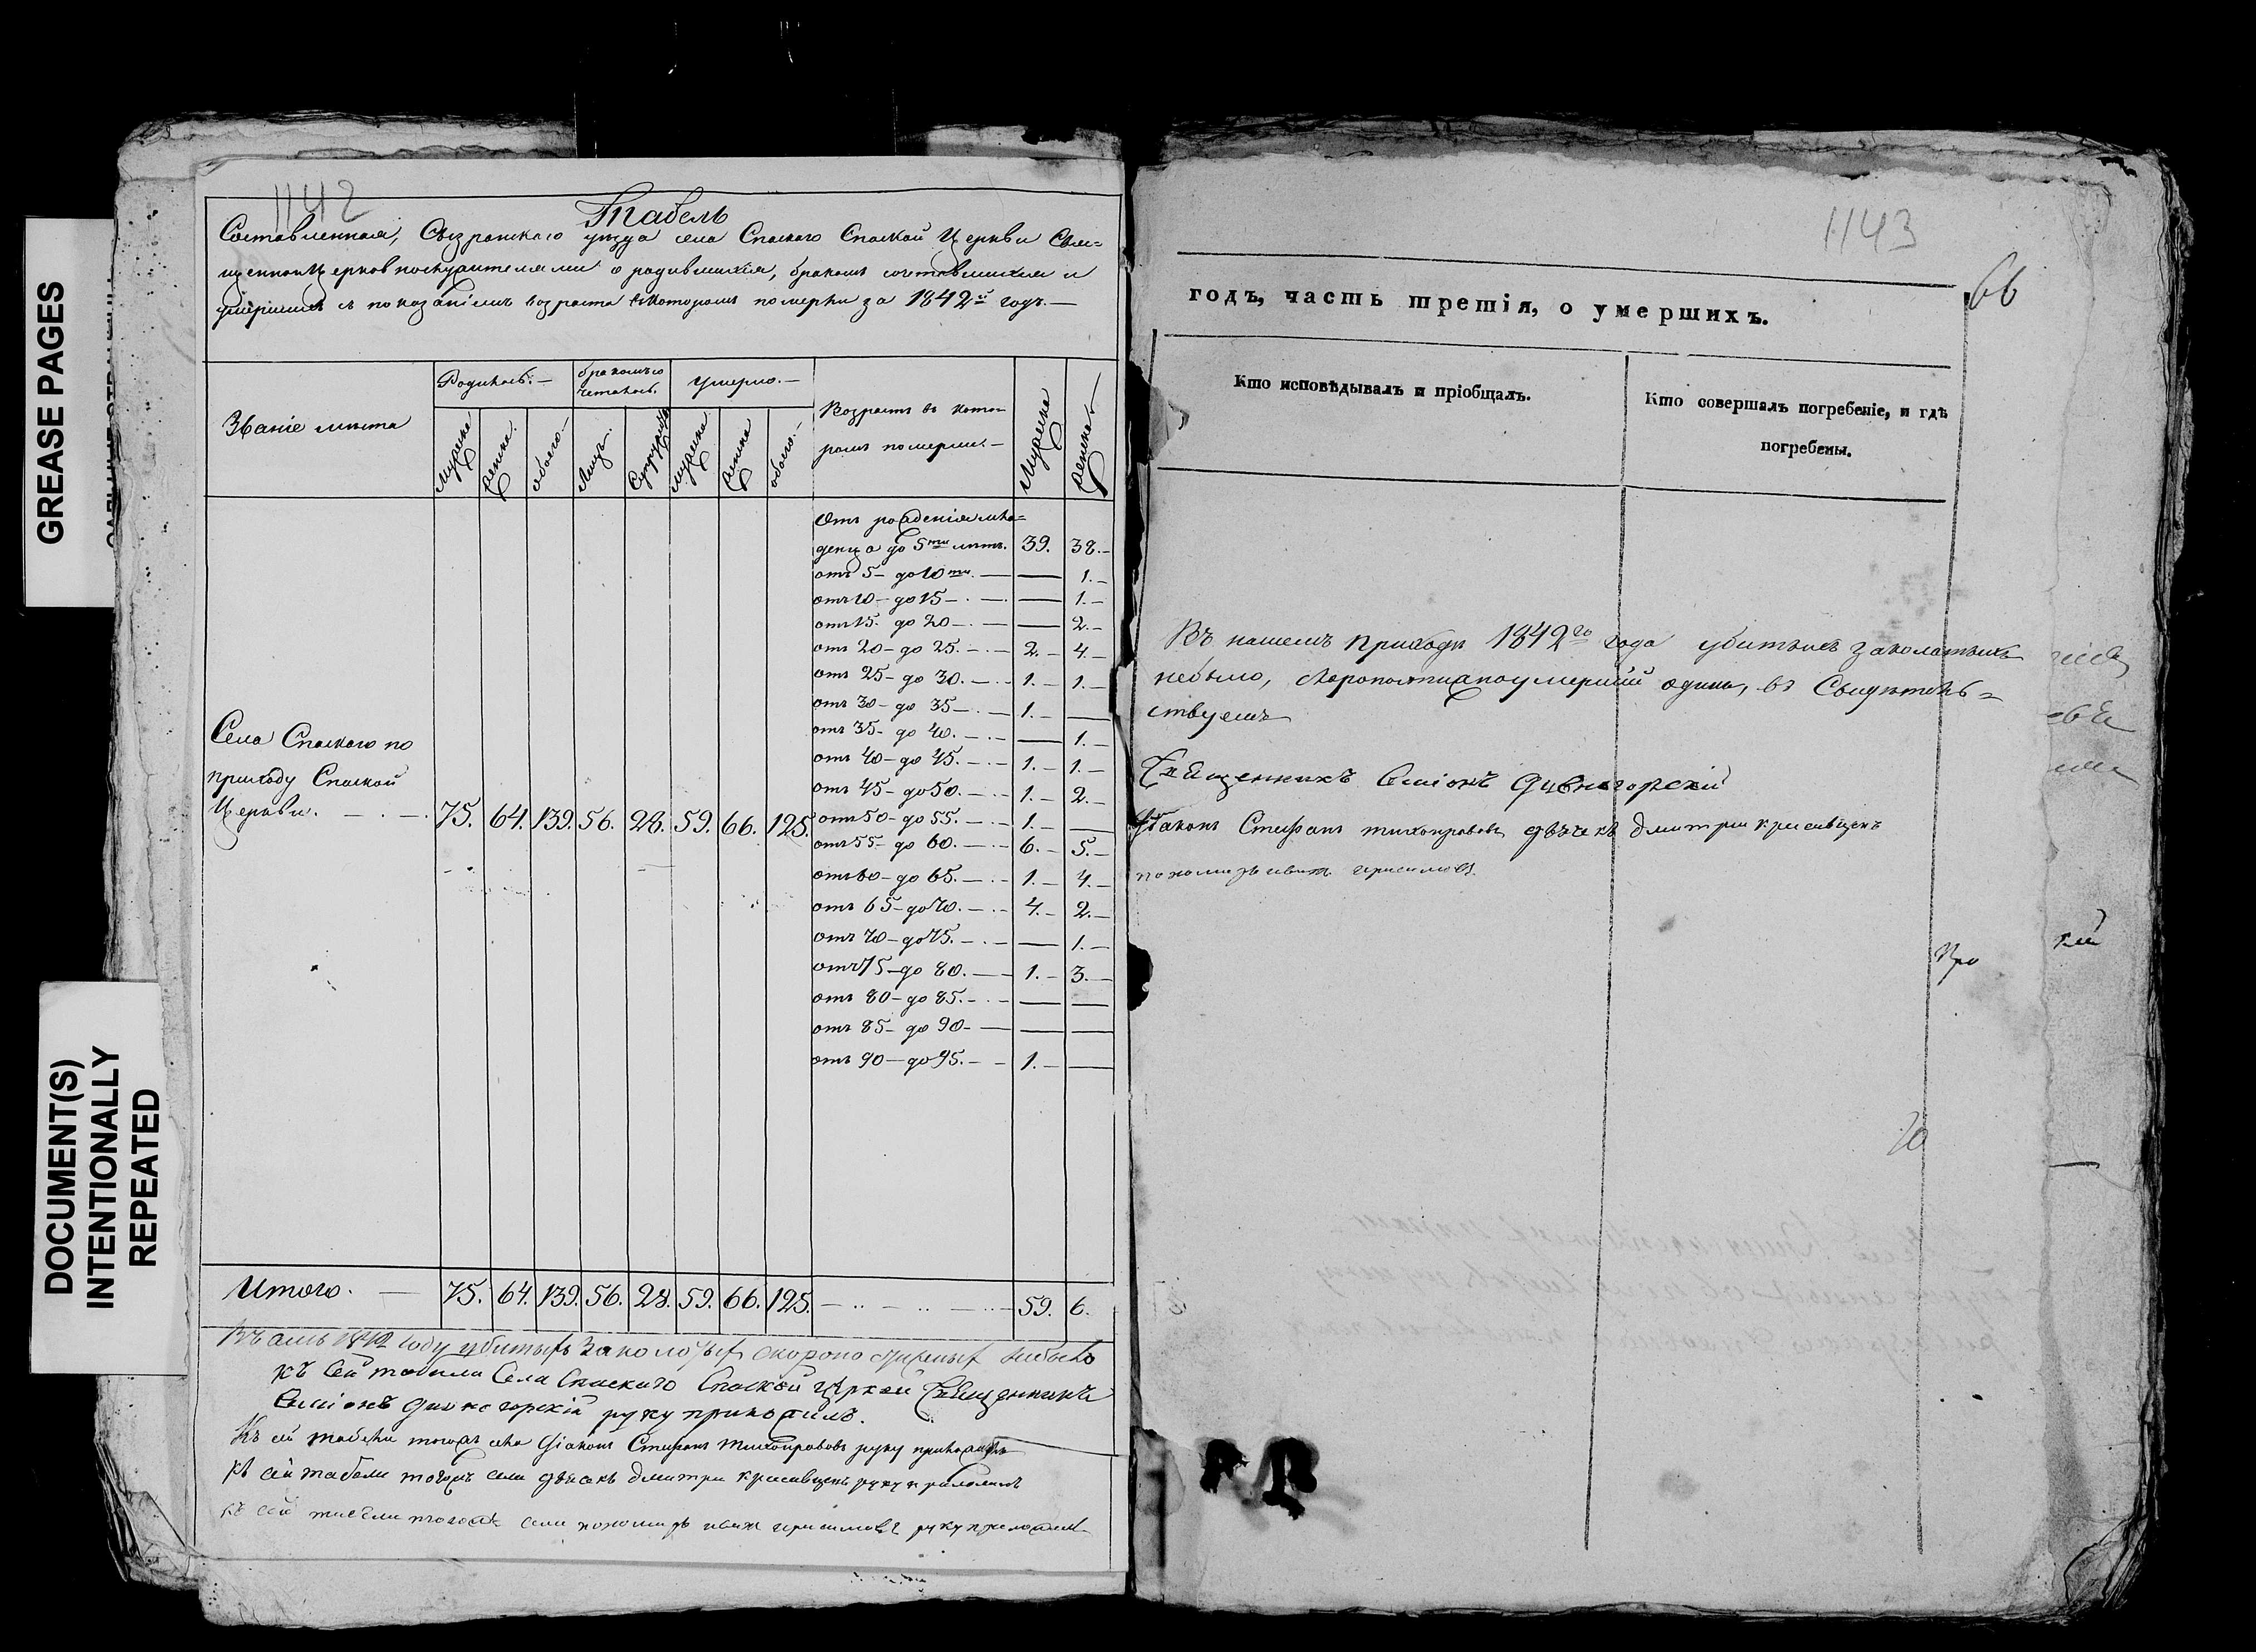 GREASE PAGES
DOCUMENT(S)
INTENTIONALLY
REPEATED
1142
Табель
Составленная, Сызранскаго уѣзда села Спаскаго Спаской Церкви Свя=
щенноцерковнослужителями о родившихся, бракомъ сочетавшихся и
умершихъ съ показаніемъ возраста въ которомъ померли за 1842й годъ.—
Званіе мѣста
Родилось.—
бракомъ со
четалось.
Умерло.—
Возрастъ въ кото
ромъ померли.—
Мужеска
женска
Мужеска
женска
обоего
Лицъ
Супружествъ
мужеска
женска
обоего.—
Отъ рожденія мла=
денца до 5ти лѣтъ. 39. 38.—
отъ 5— до 10ти. — — 1.—
отъ 10— до 15— — 1.—
отъ 15. до 20— — 2.—
отъ 20— до 25.— 2.— 4.—
отъ 25— до 30.— 1.— 1.—
отъ 30— до 35— 1.— —
отъ 35— до 40.— — 1.—
отъ 40— до 45.— 1.— 1.—
отъ 45— до 50.— 1.— 2.—
отъ 50— до 55.— 1.— —
отъ 55— до 60.— 6.— 5.—
отъ 60— до 65.— 1.— 4.—
отъ 65— до 70.— 4.— 2.—
отъ 70— до 75.— — 1.—
отъ 75— до 80.— 1.— 3.—
отъ 80— до 85.— — —
отъ 85— до 90— — —
отъ 90— до 95.— 1.— —
Села Спаскаго по
приходу Спаской
Церкви. — . — 75. 64. 139. 56. 28. 59. 66. 125.
Итого. — 75. 64. 139. 56. 28. 59. 66. 125. — 59. 6.
1842 году убитыхъ заколотыхъ небыло
Къ сей табели Села Спаскаго Спаской Церкви Священникъ
Симіонъ Дивногорскій руку приложилъ.
Къ сей табели тогожъ села Діаконъ Стефанъ Тихонравовъ руку приложилъ
Къ сей табели тогожъ села дьячекъ Дмитри руку приложилъ
къ сей табели тогожъ села пономарь Иванъ Герасимовъ руку приложилъ
1143
66
годъ, часть третія, о умершихъ.
Кто исповѣдывалъ и пріобщалъ.
Кто совершалъ погребеніе, и гдѣ
погребены.
Въ нашемъ приходѣ 1842го года убитыхъ заколотыхъ
небыло, скоропостижно умершій одинъ, въ Свидѣтель=
ствуемъ
Священникъ Симіонъ Дивногорскій
Діаконъ Стефанъ Тихонравовъ дьячекъ Дмитри
пономарь Иванъ Герасимовъ
Про